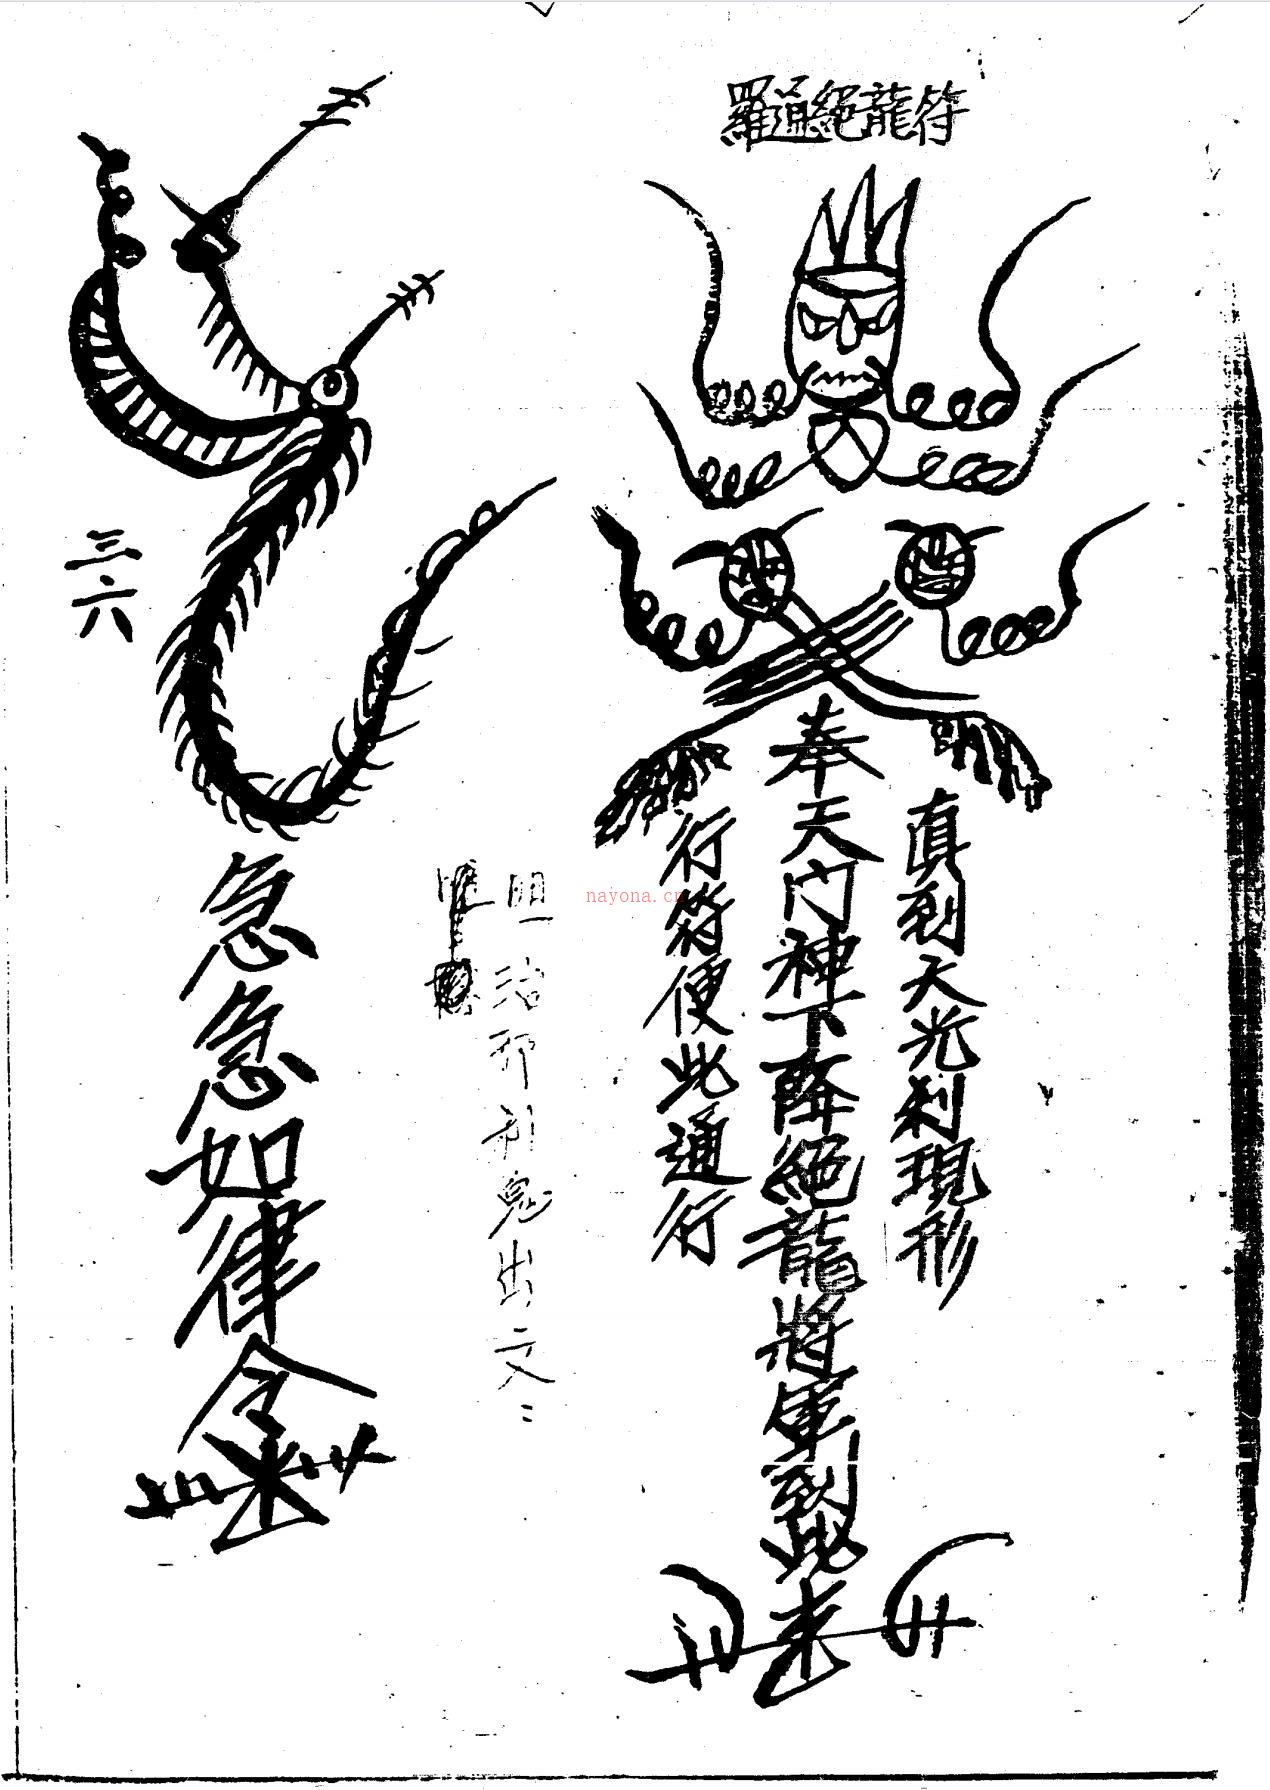 羅通絕龍符
真到天光刹現形
奉天門神下降絕龍將軍到此来
行符便此通行
nayona.cn
治邪利鬼出文
急急如律令
三六